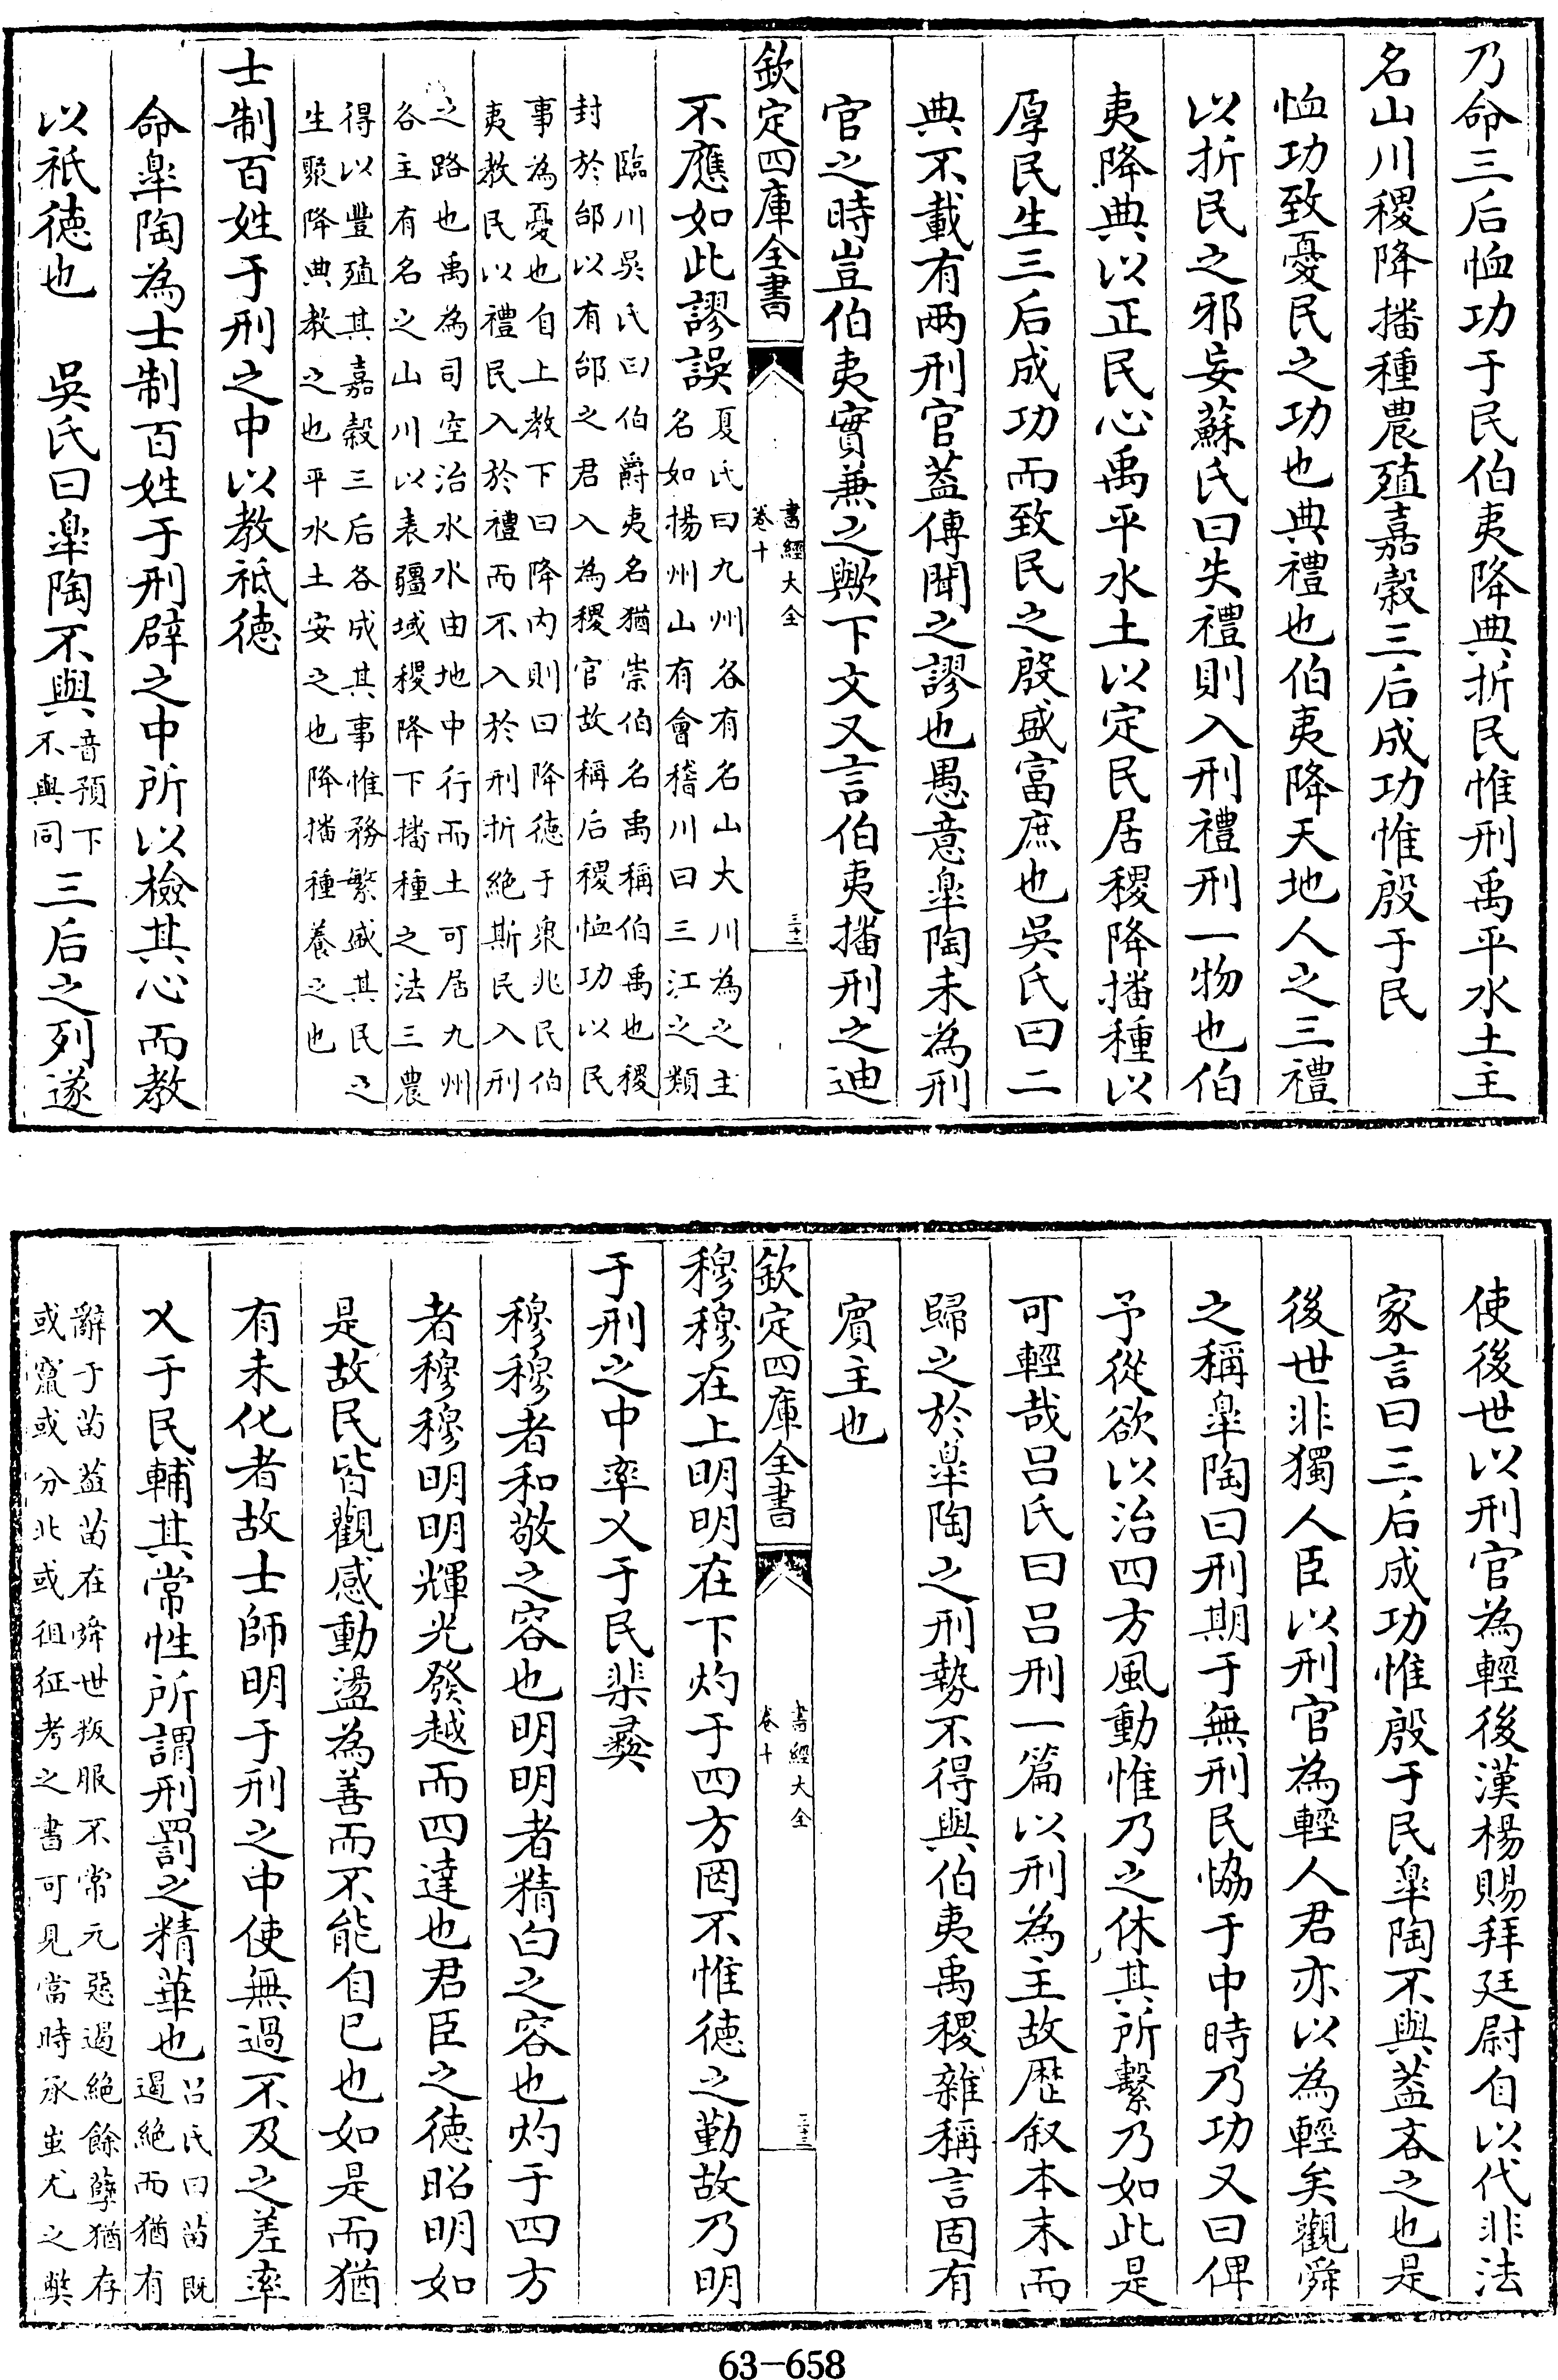 乃命三后恤功于民伯夷降典折民惟刑禹平水土主
名山川稷降播種農殖嘉穀三后成功惟殷于民
恤功致憂民之功也典禮也伯夷降天地人之三禮
以折民之邪妄蘇氏曰失禮則入刑禮刑一物也伯
夷降典以正民心禹平水土以定民居稷降播種以
厚民生三后成功而致民之殷盛富庶也吳氏曰二
典不載有两刑官蓋傳聞之謬也愚意臯陶未為刑
官之時豈伯夷實兼之歟下文又言伯夷播刑之迪
欽定四庫全書
書經大全
卷十
三十二
不應如此謬誤
夏氏曰九州各有名山大川為之主
名如揚州山有會稽川曰三江之類
臨川吳氏曰伯爵夷名猶崇伯名禹稱伯禹也稷
封於邰以有邰之君入為稷官故稱后稷恤功以民
事為憂也自上教下曰降内則曰降徳于衆兆民伯
夷教民以禮民入於禮而不入於刑折絶斯民入刑
之路也禹為司空治水水由地中行而土可居九州
各主有名之山川以表疆域稷降下播種之法三農
得以豐殖其嘉穀三后各成其事惟務繁盛其民之
生聚降典教之也平水土安之也降播種養之也
士制百姓于刑之中以教祗徳
命臯陶為士制百姓于刑辟之中所以檢其心而教
以祗徳也　吳氏曰臯陶不與
音預下
不與同
三后之列遂
使後世以刑官為輕後漢楊賜拜廷尉自以代非法
家言曰三后成功惟殷于民臯陶不與蓋吝之也是
後世非獨人臣以刑官為輕人君亦以為輕矣觀舜
之稱臯陶曰刑期于無刑民恊于中時乃功又曰俾
予從欲以治四方風動惟乃之休其所繫乃如此是
可輕哉吕氏曰吕刑一篇以刑為主故歴叙本末而
歸之於臯陶之刑勢不得與伯夷禹稷雜稱言固有
賔主也
欽定四庫全書
書經大全
卷十
三十三
穆穆在上明明在下灼于四方罔不惟徳之勤故乃明
于刑之中率乂于民棐彞
穆穆者和敬之容也明明者精白之容也灼于四方
者穆穆明明輝光發越而四達也君臣之徳昭明如
是故民皆觀感動盪為善而不能自已也如是而猶
有未化者故士師明于刑之中使無過不及之差率
乂于民輔其常性所謂刑罰之精華也
吕氏曰苗既
遏絶而猶有
辭于苗蓋苗在舜世叛服不常元惡遏絶餘孽猶存
或竄或分北或徂征考之書可見當時承蚩尤之弊
63-658